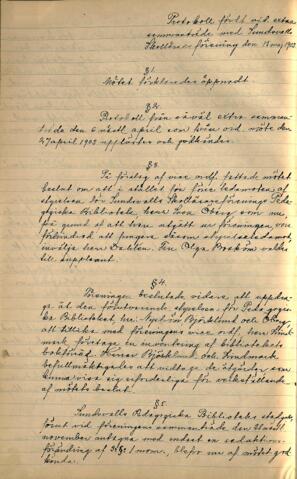 Protokoll fördt vid extra
sammanträde med Sundsvalls
Skollärareförening den 13 maj 1903
§ 1.
Mötet förklarades öppnadt.
§ 2.
Protokoll från såväl extra samman-
träde den 6 sistl. april som från ord. möte den
27 april 1903 upplästes och godkändes.
§ 3.
På förslag af vice ordf. fattade mötet
beslut om att i stället för förre ledamoten af
styrelsen för Sundsvalls Skollärareförenings Peda-
gogiska Bibliotek, herr Öberg som nu,
på grund af att han afgått ur föreningen, vore
förhindrad att fungera såsom styrelseledamot
invälja herr Dahlén. Frk Olga Broström valdes
till suppleant.
§ 4.
Föreningen beslutade vidare att uppdra-
ga åt den förutvarande styrelsen för Pedagogis-
ka Biblioteket hrr Nyström Björklund och Öberg
att tillika med föreningens vice ordf. herr Lind-
mark företaga en inventering af bibliotekets
bokförråd. Herrar Björklund och Lindmark
befullmäktigades att vidtaga de åtgärder som
kunna visa sig erforderliga för verkställande
af mötets beslut.
§ 5.
Sundsvalls Pedagogiska Biblioteks stadgar,
förut vid föreningens sammanträde den
november antagna med endast en redaktions-
förändring af § 1 mom., blefvo nu af mötet god-
kända.